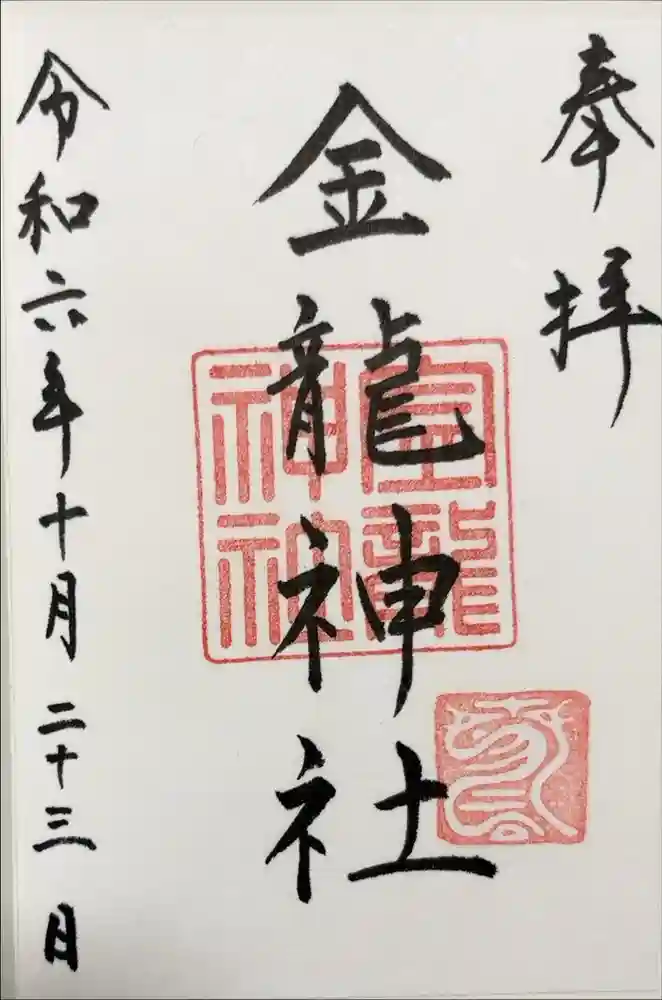 奉拝
金龍神社
金龍
神社
令和六年十月二十三日